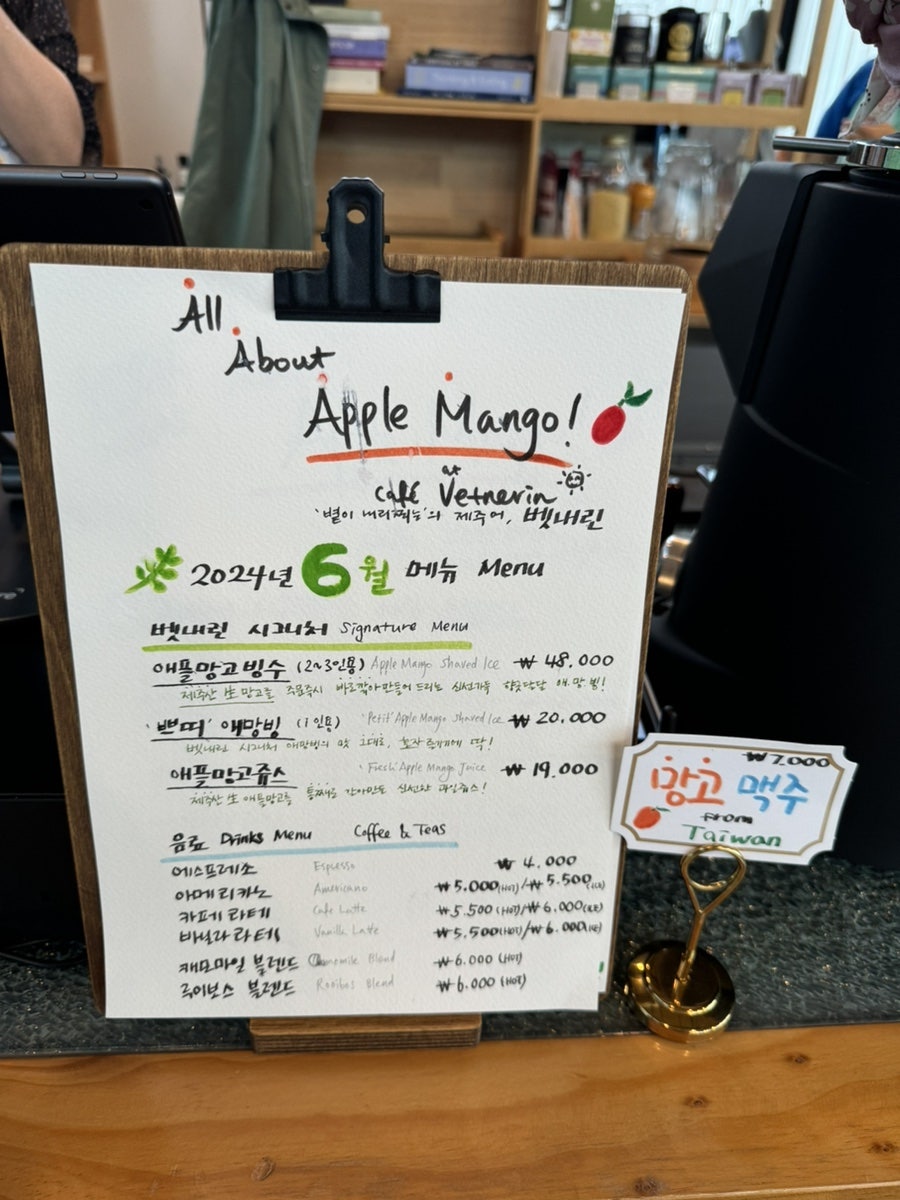 All
About
Apple Mango!
at
Café Vetnerin
'볕이 내리쬐는'의 제주어, 벳내린
2024년 6월 메뉴 Menu
벳내린 시그니처 Signature Menu
애플망고빙수 (2~3인용) Apple Mango Shaved Ice ₩ 48.000
제주산 生 망고를 주문즉시 바로깎아만들어드리는 신선가득 향긋달달 애.망.빙!
'쁘띠' 애망빙 (1인용) 'Petit' Apple Mango Shaved Ice ₩ 20.000
벳내린 시그니처 애망빙의 맛 그대로, 혼자 즐기기에 딱!
애플망고쥬스 'Fresh' Apple Mango Juice ₩ 19.000
제주산 生 애플망고를 통째로 갈아만든 신선한 과일쥬스!
음료 Drinks Menu Coffee & Teas
에스프레소 Espresso ₩ 4.000
아메리카노 Americano ₩ 5.000 (HOT) / ₩ 5.500 (ICE)
카페 라떼 Cafe Latte ₩ 5.500 (HOT) / ₩ 6.000 (ICE)
바닐라 라떼 Vanilla Latte ₩ 5.500 (HOT) / ₩ 6.000 (ICE)
캐모마일 블렌드 Chamomile Blend ₩ 6.000 (HOT)
루이보스 블렌드 Rooibos Blend ₩ 6.000 (HOT)
₩ 7.000
망고 맥주
from
Taiwan